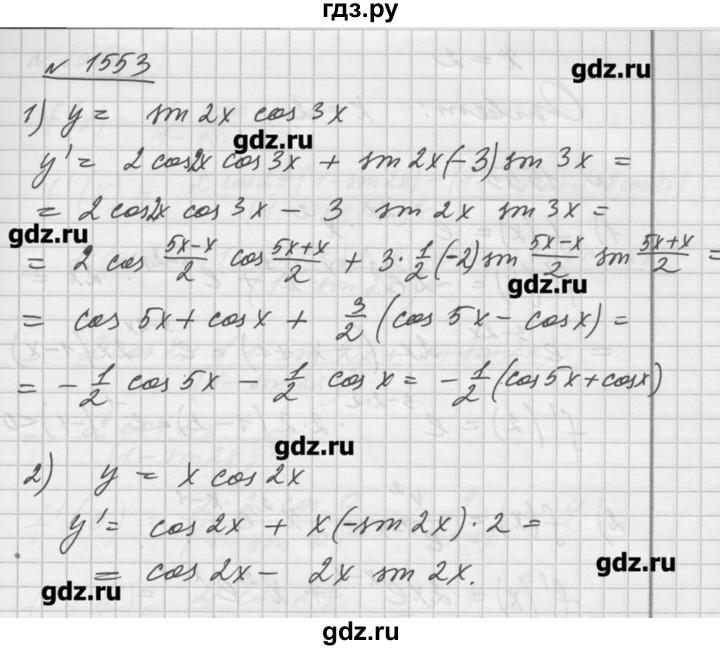 гдз.ру
№ 1553
gdz.ru
1) y = sin 2x cos 3x
gdz.ru
y' = 2 cos2x cos 3x + sin 2x(-3) sin 3x =
= 2 cos2x cos 3x - 3 sin 2x sin 3x =
gdz.ru
= 2 cos (5x-x)/2 cos (5x+x)/2 + 3·1/2(-2) sin (5x-x)/2 sin (5x+x)/2 =
gdz.ru
= cos 5x + cos x + 3/2 (cos 5x - cos x) =
= -1/2 cos 5x - 1/2 cos x = -1/2 (cos5x + cosx)
gdz.ru
2) y = x cos 2x
y' = cos 2x + x(-sin 2x)·2 =
gdz.ru
= cos 2x - 2x sin 2x.
gdz.ru
gdz.ru